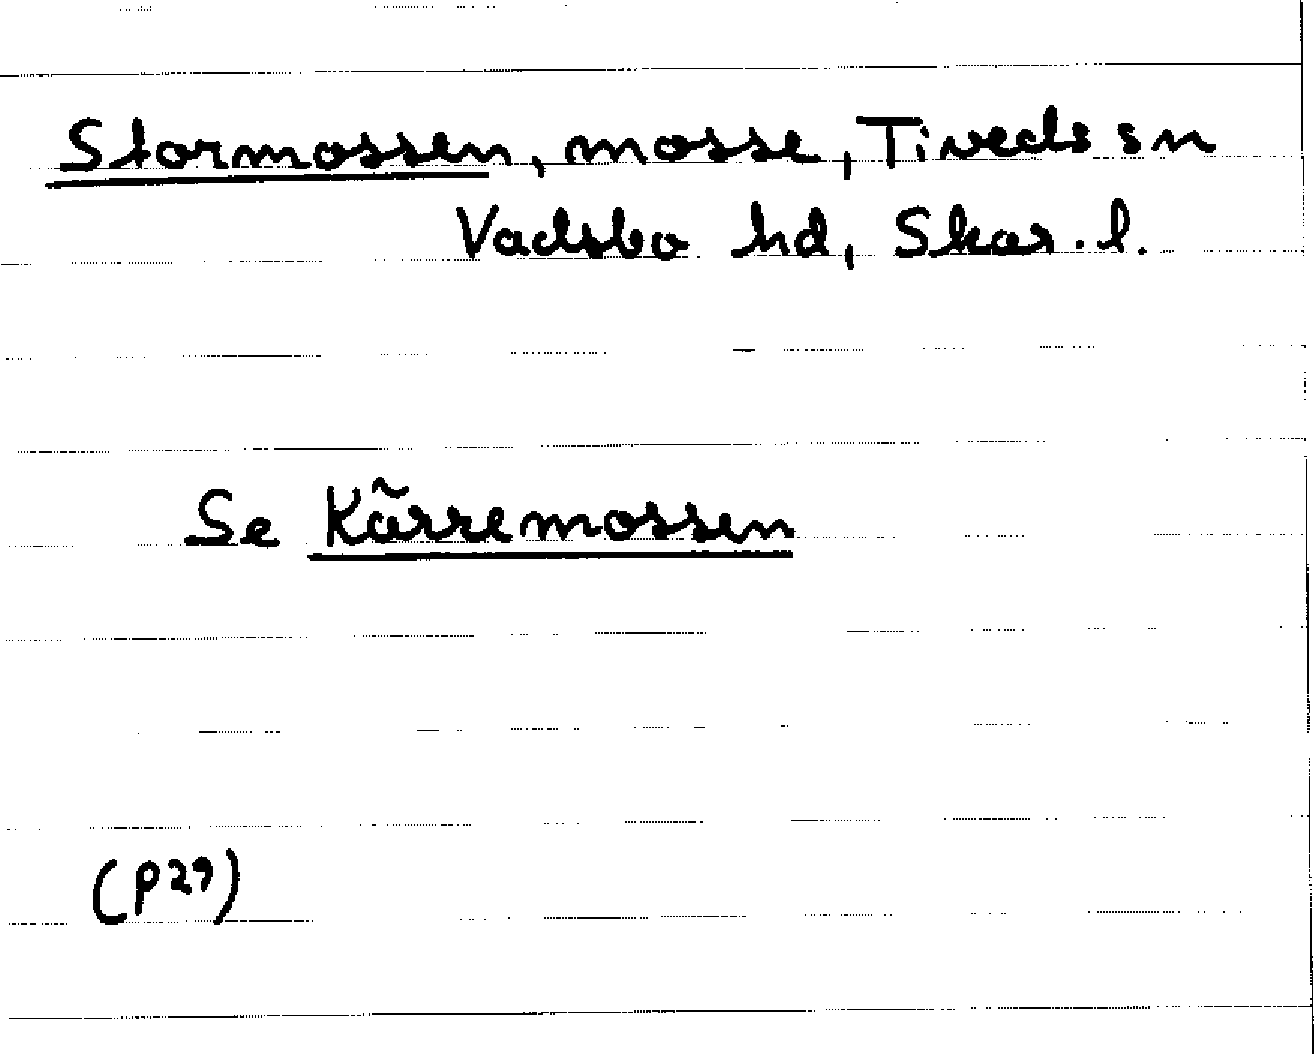 Stormossen, mosse, Tiveds sn
Vadsbo hd, Skar. l.
Se Kärremossen
(p29)